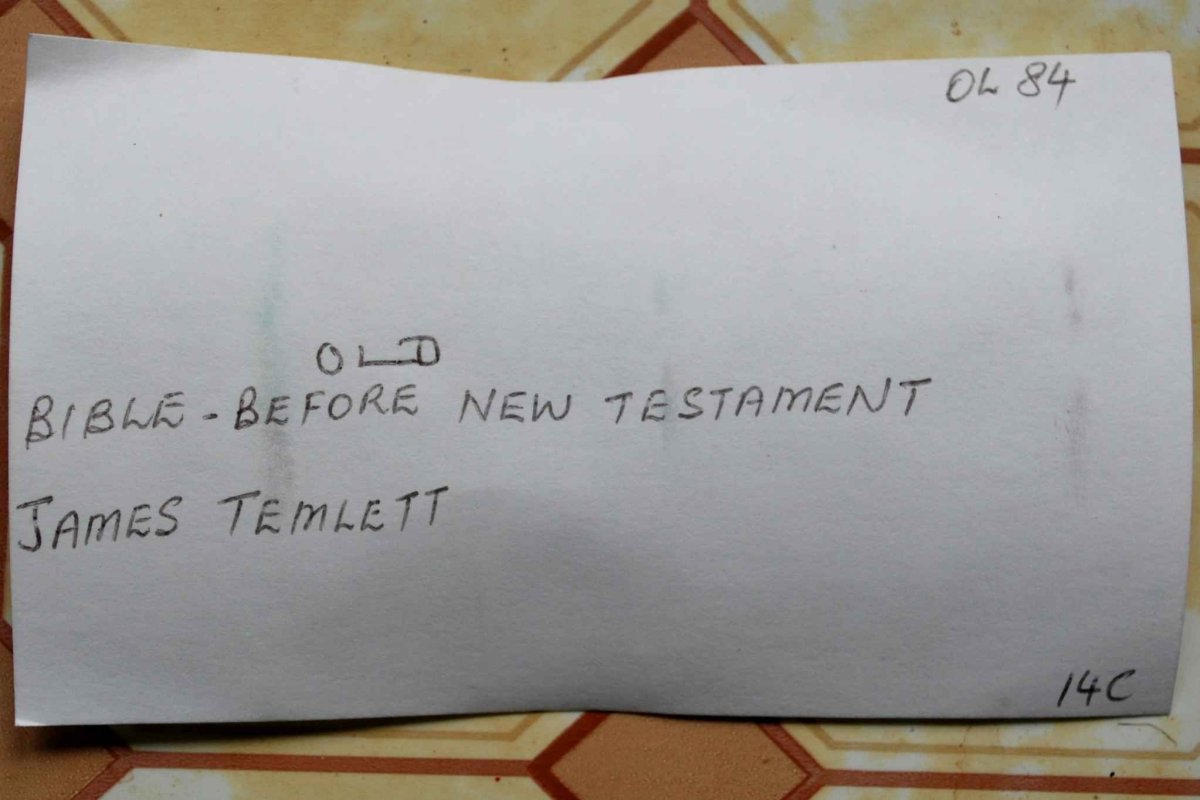 OL 84
OLD
BIBLE - BEFORE NEW TESTAMENT
JAMES TEMLETT
14C